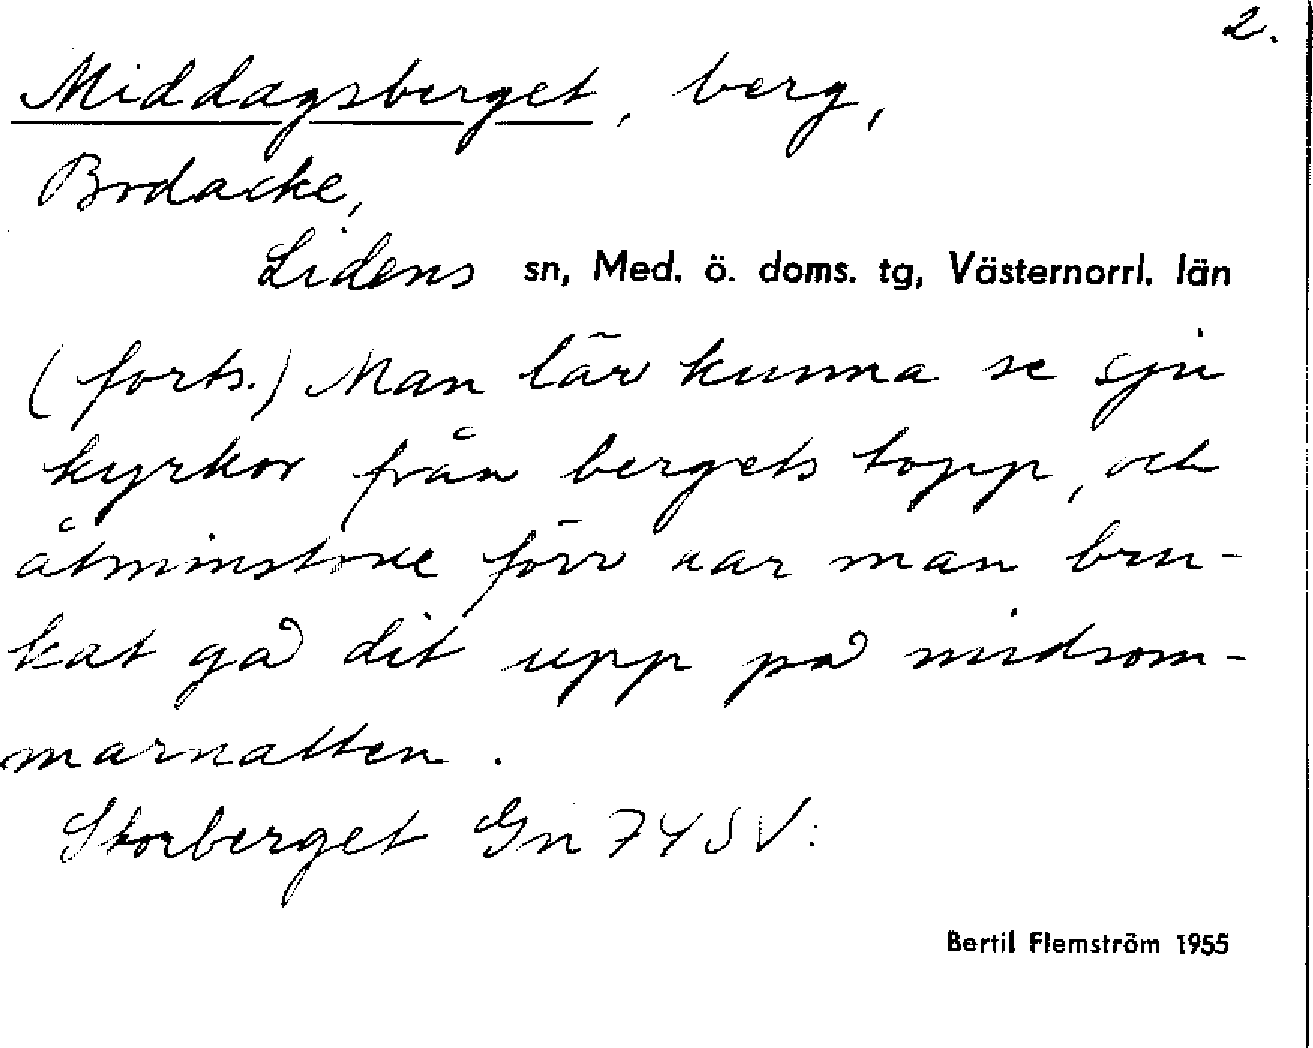 2.
Middagsberget, berg,
Bodacke,
Lidens sn, Med. ö. doms. tg, Västernorrl. län
(forts.) Man lär kunna se sju
kyrkor från bergets topp, och
åtminstone förr har man bru-
kat gå dit upp på midsom-
marnatten.
Storberget Gn 74 SV.
Bertil Flemström 1955